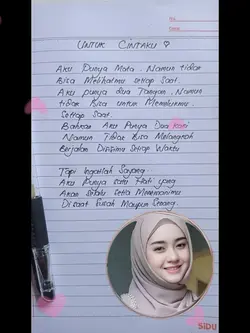 No:
Date:
UNTUK CINTAKU
Aku Punya Mata. Namun tidak
Bisa Melihatmu setiap Saat.
Aku punya dua Tangan. Namun
tidak Bisa untuk Memelukmu.
Setiap Saat.
Bahkan Aku Punya Dua Kaki
Namun Tidak Bisa Melangkah
Berjalan Disisimu Setiap Waktu
Tapi Ingatlah Sayang
Aku Punya satu Hati yang
Akan Selalu Setia Menemanimu
Disaat Susah Maupun Senang.
SIDU